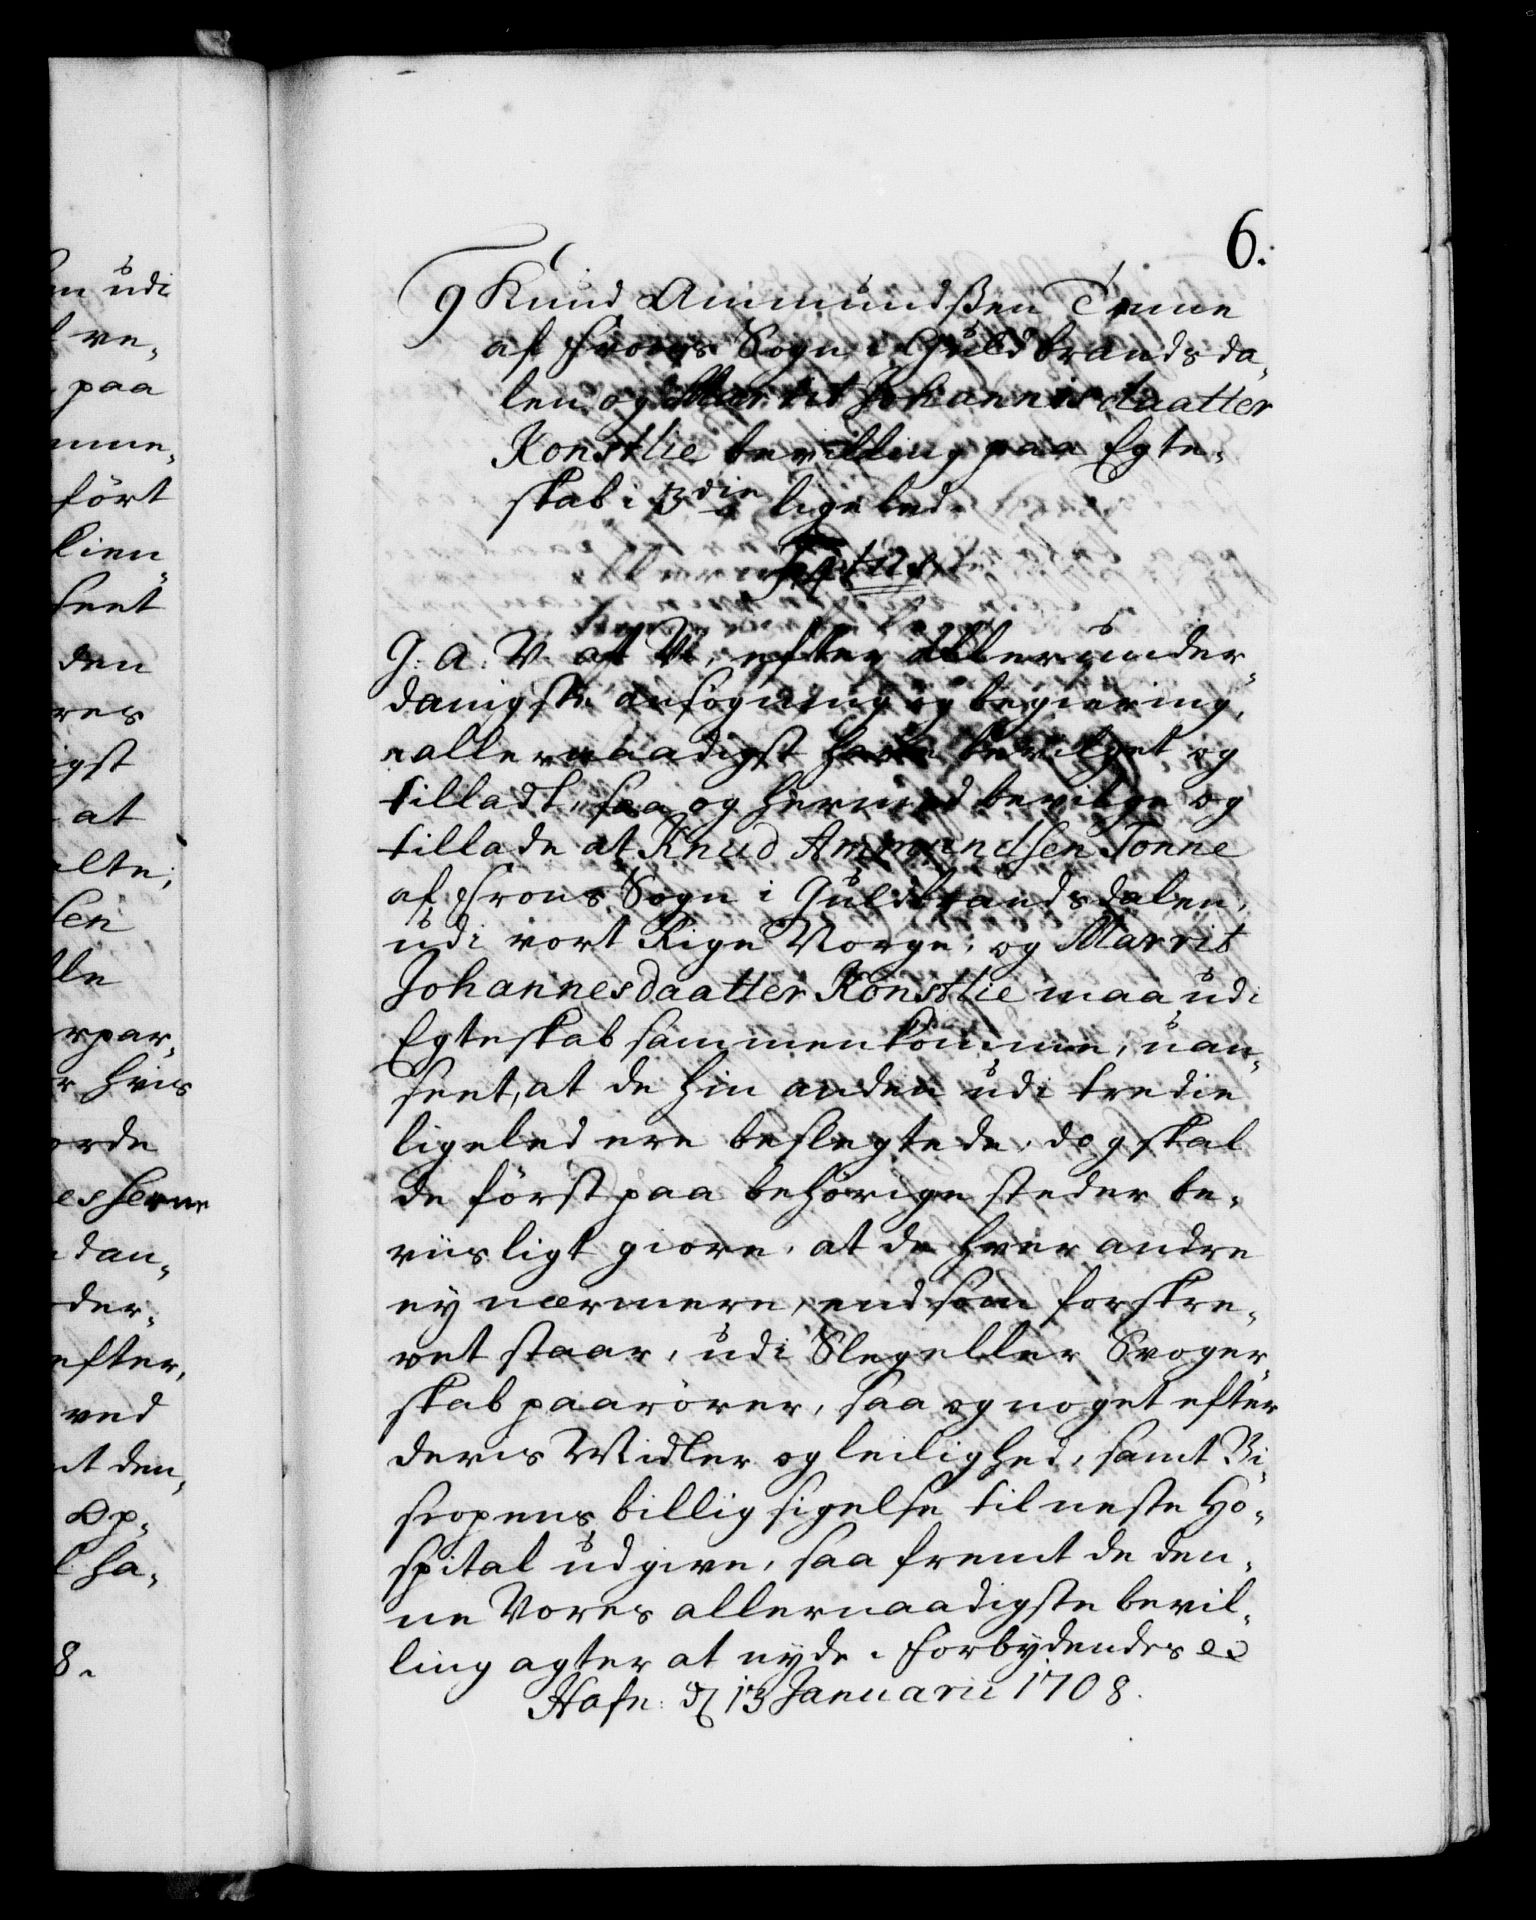 6.
9 Knud Ammundßen Tonne
af Frons Sogn i Guldbrandsda„
len og Marrit Johannisdaatter
Konstlie bevilling paa Egte„
skab i 3die lige led.
G. A. V. at Vi, efter allerunder„
danigste ansøgning og begiering,
allernaadigst have bevilget og
tilladt, saa og hermed bevilge og
tillade at Knud Ammundsen Tonne
af Frons Sogn i Guldbrandsdalen,
udi vort Rige Norge, og Marrit
Johannesdaatter Konstlie maa udi
Egteskab sammenkomme, uan„
seet, at de hin anden udi tredie
ligeled ere beslegtede, dog skal
de først paa behörige steder be„
viisligt giöre, at de hver andre
ey nærmere, end som forskre„
vet staar, udi Slegt eller Svoger„
skab paarörer, saa og noget efter
deris Midler og leilighed, samt Bi„
scopens billig sigelse til neste Ho„
spital udgive, saa fremt de den„
ne Vores allernaadigste bevil„
ling agter at nyde. Forbydendes ec
Hafn: d 13 Januarii 1708.
m udi
ve„
paa
mme„
fört
lien
seet
den
res
igst
at
lte;
sen
le
rpar„
r hvis
orde
es herre
dan„
der„
efter,
ved
t den„
Op„
ha„
8.